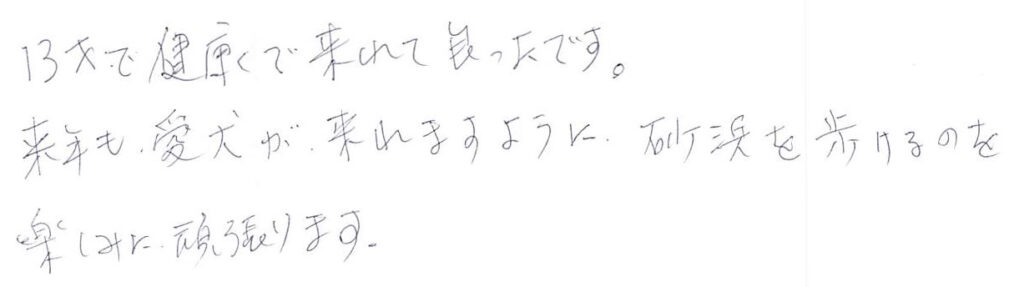 13才で健康くで来れて良ったです。
来年も、愛犬が、来れますように、砂浜を歩けるのを
楽しみに、頑張ります。